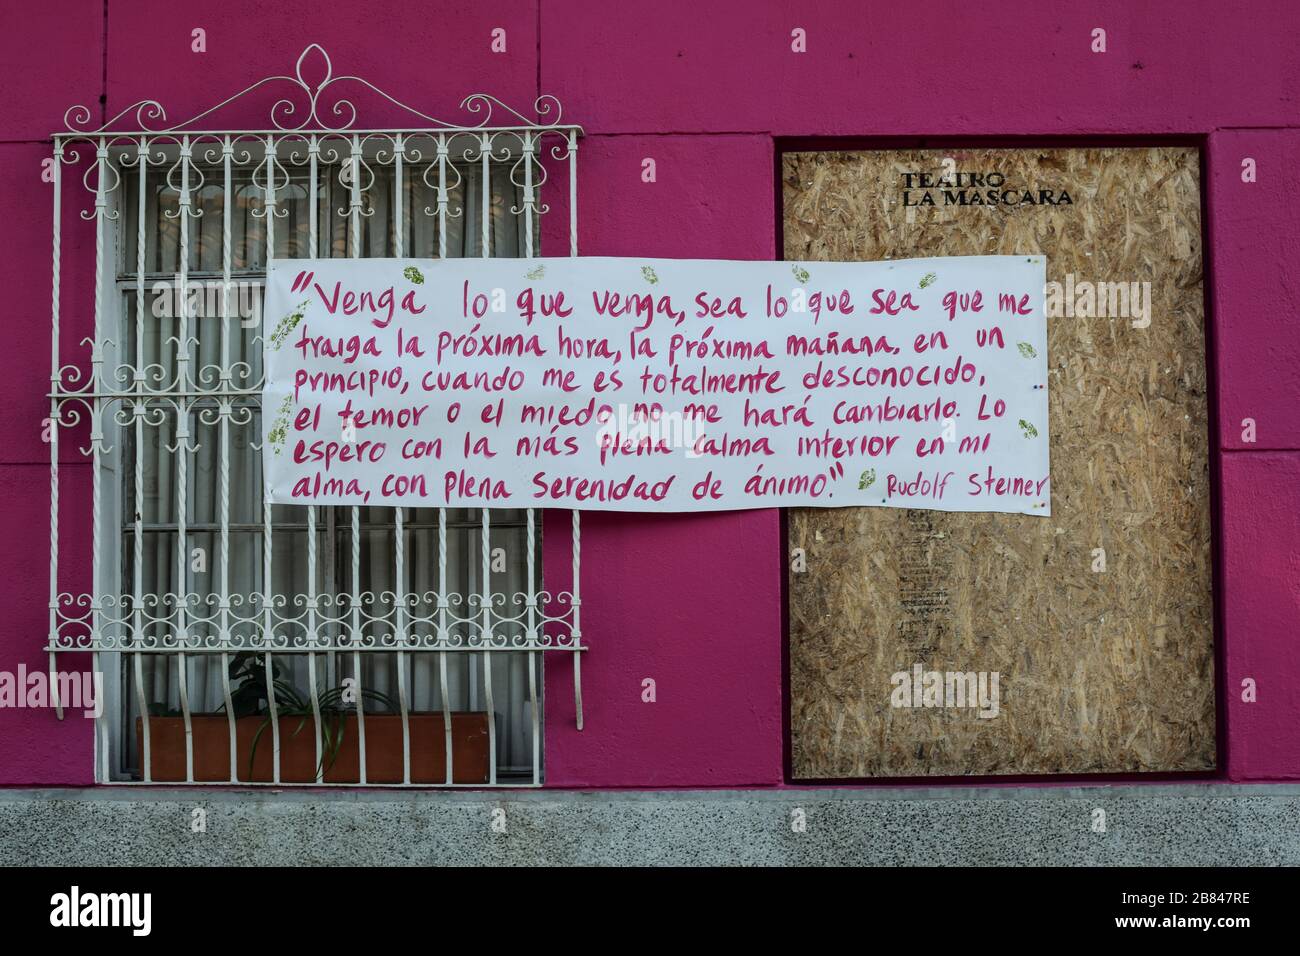 TEATRO
LA MASCARA
"Venga lo que venga, sea lo que sea que me
traiga la próxima hora, la próxima mañana, en un
principio, cuando me es totalmente desconocido,
el temor o el miedo no me hará cambiarlo. Lo
espero con la más plena calma interior en mi
alma, con plena serenidad de ánimo." Rudolf Steiner
alamy
Image ID: 2B847RE
www.alamy.com